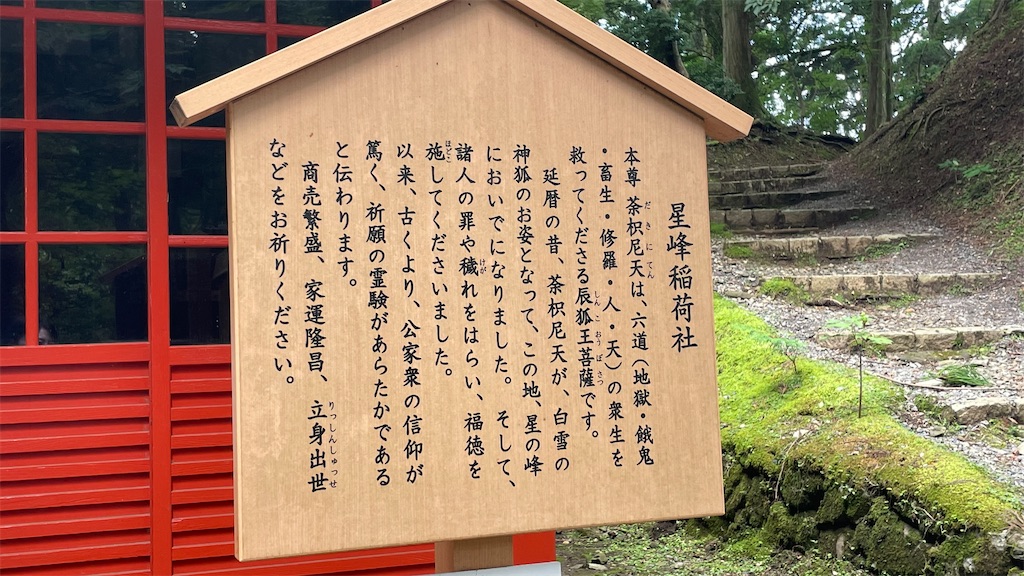 星峰稲荷社
本尊 茶枳尼天は、六道（地獄・餓鬼
・畜生・修羅・人・天）の衆生を
救ってくださる辰狐王菩薩です。
延暦の昔、茶枳尼天が、白雪の
神狐のお姿となって、この地、星の峰
においでになりました。そして、
諸人の罪や穢れをはらい、福徳を
施してくださいました。
以来、古くより、公家衆の信仰が
篤く、祈願の霊験があらたかである
と伝わります。
商売繁盛、家運隆昌、立身出世
などをお祈りください。
だきにてん
しんこおうぼさつ
けが
ほどこ
りっしんしゅっせ